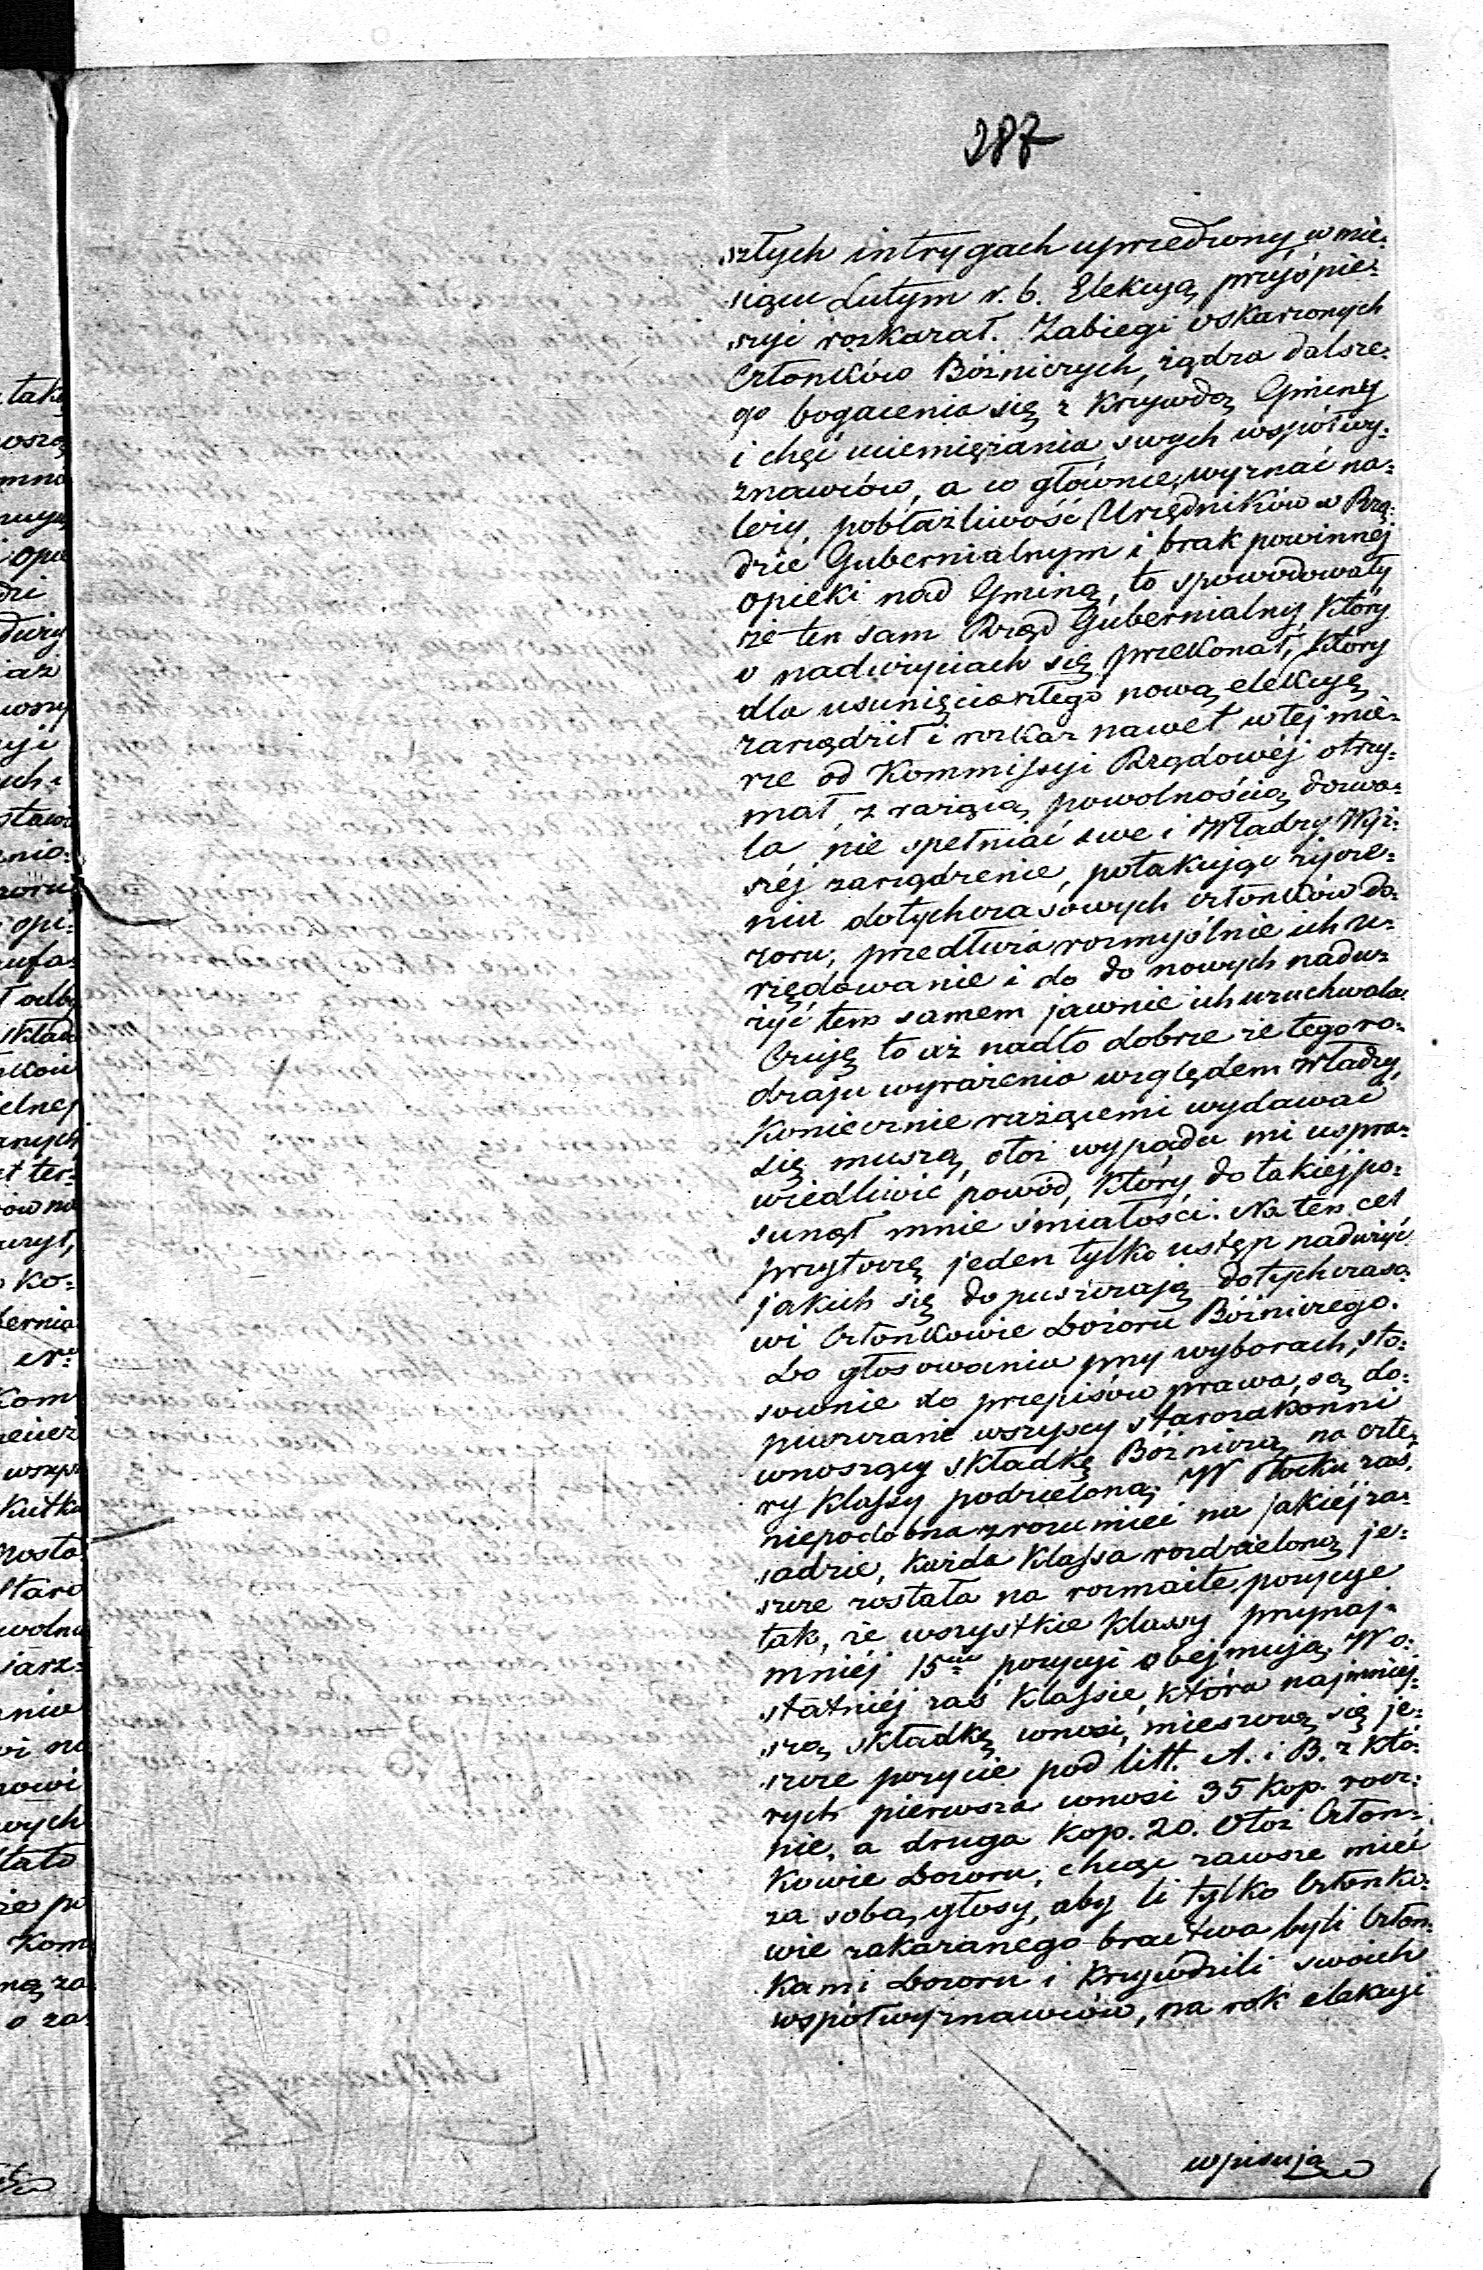 287
szłych intrygach uprzedzony, w mie=
siącu Lutym r. b. Elekcyą przyśpie=
szyć rozkazał. Zabiegi oskarżonych
Członków Bóżniczych, żądza dalsze=
go bogacenia się z krzywdą Gminy
i chęć uciemiężania swych współwy=
znawców, a co głównie, wyznać na=
leży, pobłażliwość Urzędników w Rzą=
dzie Gubernialnym i brak powinnej
opieki nad Gminą, to spowodowały
że ten sam Rząd Gubernialny, który
o nadużyciach się przekonał, który
dla usunięcia złego nową elekcyę
zarządził i rozkaz nawet w tej mie=
rze od Kommissyi Rządowéj otrzy=
mał, z rażącą powolnością dozwa=
la nie spełniać swe i Władzy Wyż=
széj zarządzenie, potakując życze=
niu dotychczasowych członków do=
zoru, przedłuża rozmyślnie ich u=
rzędowanie i do do nowych naduż
żyć tem samem jawnie ich uzuchwala.
Czuję to aż nadto dobrze że tego ro=
dzaju wyrażenia względem Władzy,
koniecznie rażącemi wydawać
się muszą, otóż wypada mi uspra=
wiedliwić powód, który do takiéj po=
sunął mnie śmiałości. Na ten cel
przytoczę jeden tylko ustęp nadużyć
jakich się dopuszczają dotychczaso=
wi Członkowie Dozoru Bóżniczego.
Do głosowania przy wyborach, sto=
sownie do przepisów prawa, są do=
puszczani wszyscy starozakonni
wnoszący składkę Bóżniczą na czte=
ry klassy podzieloną. W Płocku zaś,
niepodobna zrozumieć na jakiéj za=
sadzie, każda klassa rozdzieloną je=
szcze została na rozmaite pozycye
tak, że wszystkie klassy przynaj=
mniéj 15cie pozycyi obejmują. W o=
statniéj zaś klassie, która najmniej=
szą składkę wnosi, mieszczą się je=
szcze pozycie pod litt. A. i B. z któ=
rych pierwsza wnosi 35 kop. rocz=
nie, a druga kop. 20. Otóż Człon=
kowie Dozoru, chcąc zawsze mieć
za sobą głosy, aby li tylko Członko=
wie zakazanego bractwa byli Człon=
kami Dozoru i krzywdzili swoich
współwyznawców, na rok elekcyi
wpisują